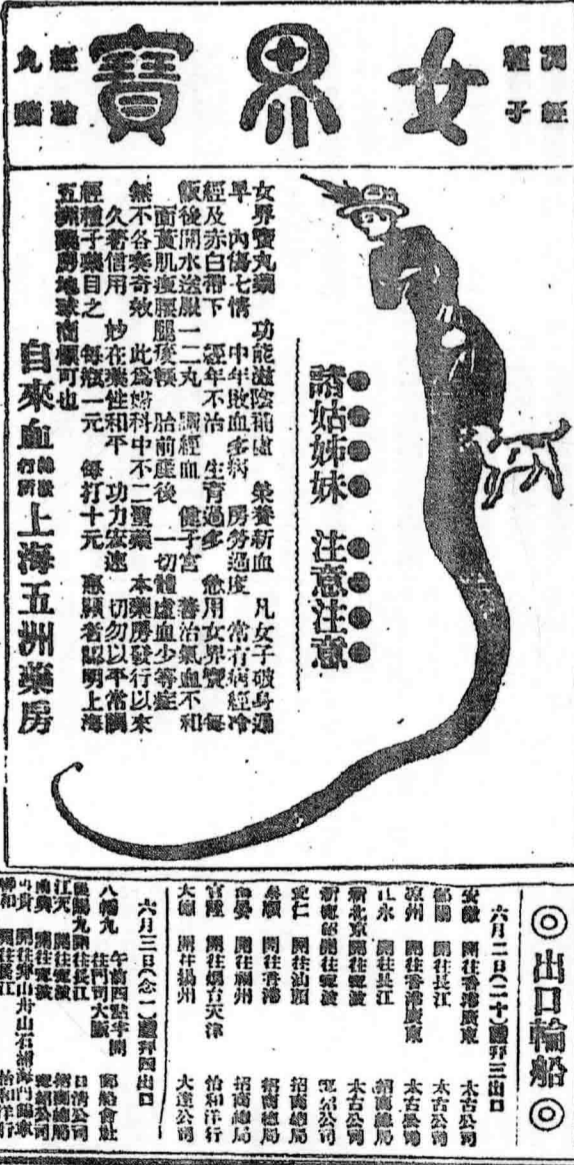 調經
種子
女界寶
經驗
丸藥
諸姑姊妹 注意注意
女界寶丸藥 功能滋陰補虛 榮養新血 凡女子破身過
早 內傷七情 中年敗血多病 房勞過度 常有病經冷
經及赤白帶下 經年不治 生育過多 急用女界寶 每
飯後開水送服一二丸 調經血 健子宮 善治氣血不和
面黃肌瘦腰腿痠軟 胎前產後 一切體虛血少等症
無不各奏奇效 此爲婦科中不二聖藥 本藥房發行以來
久著信用 妙在藥性和平 功力宏速 切勿以平常調
經種子藥目之 每瓶一元 每打十元 惠顧者認明上海
五洲藥房地球商標可也
自來血 總發行所 上海五洲藥房
◎出口輪船◎
六月二日(二十)禮拜三出口
安徽 開往香港廣東 太古公司
開往長江 太古公司
開往香港廣東 太古公司
開往長江 招商總局
新北京 開往寗波 太古公司
開往寗波 公司
愛仁 開往汕頭 招商總局
泰順 開往香港 招商總局
海晏 開往福州 招商總局
官陞 開往烟台天津 怡和洋行
大德 開往揚州 大達公司
六月三日(念一)禮拜四出口
八幡丸 午前四點半開 往門司大阪 郵船會社
開往長江 日清公司
江天 開往寗波 招商總局
開往寗波 寗紹公司
開往 舟山石浦海門 
開往長江 怡和洋行